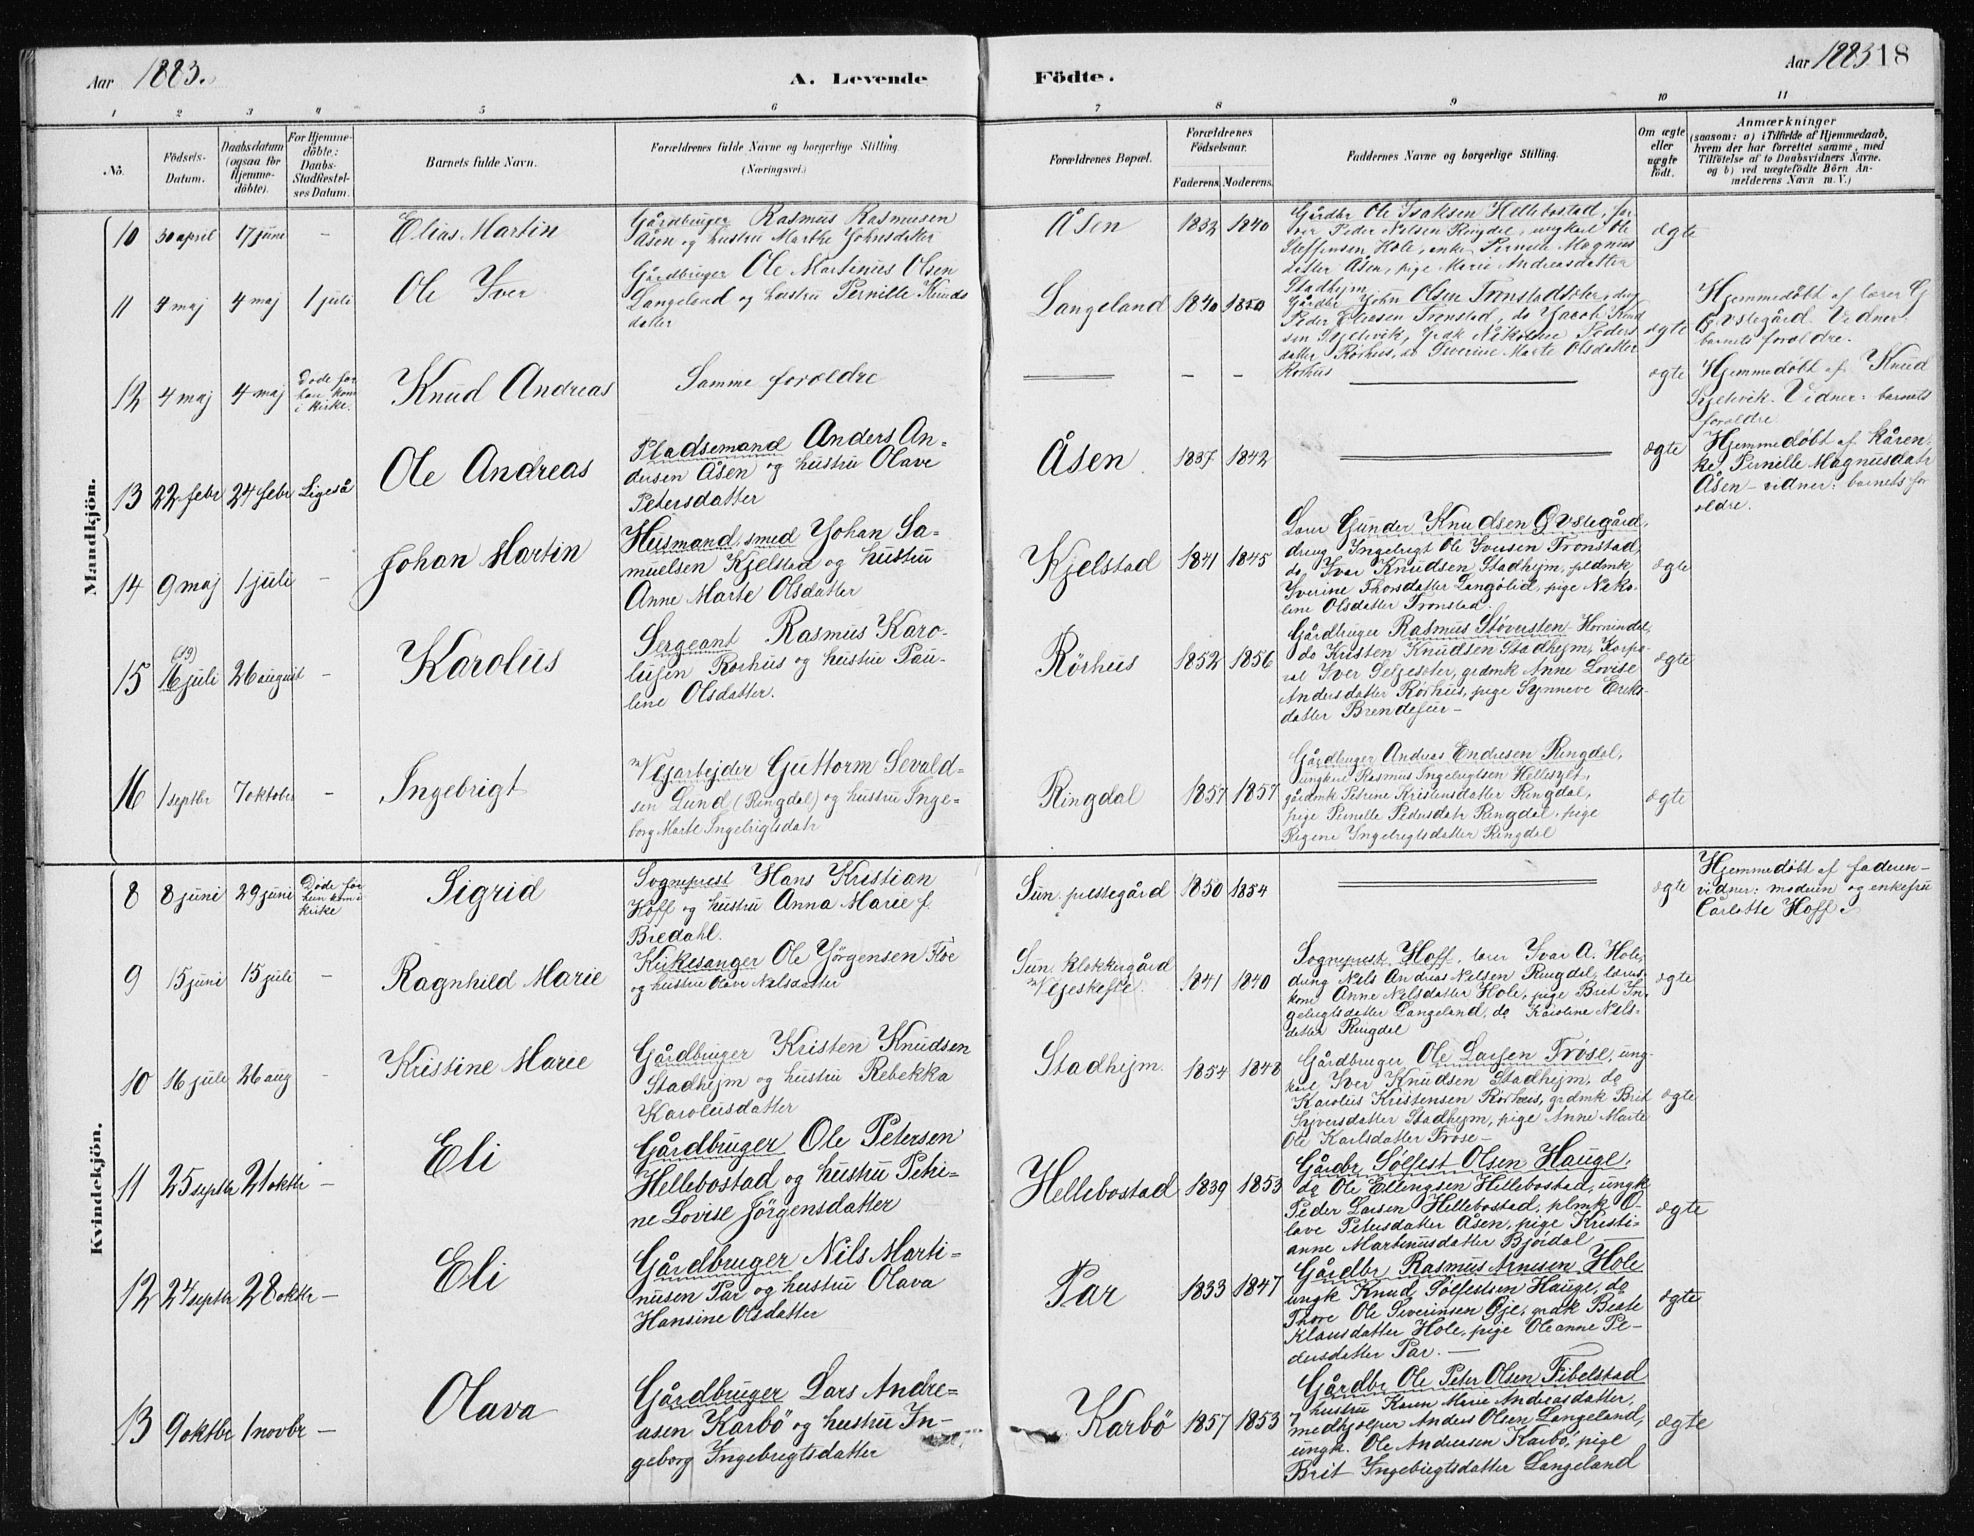 Aar 1883.
A. Levende
Födte.
Aar 1883
18
1 2 3 4 5 6 7 8 9 10 11
No.
Födsels-
Datum.
Daabsdatum
(ogsaa for
Hjemme-
döbte).
For Hjemme-
döbte:
Daabs-
Stadfæstel-
ses Datum.
Barnets fulde Navn.
Forældrenes fulde Navne og borgerlige Stilling
(Næringsvei.)
Forældrenes Bopæl.
Forældrenes
Födselsaar.
Faderens.
Moderens.
Faddernes Navne og borgerlige Stilling.
Om ægte
eller
uægte
födt.
Anmærkninger
(saasom: a) i Tilfælde af Hjemmedaab,
hvem der har forrettet samme, med
Tilföielse af to Daabsvidners Navne.
og b) ved uægtefödte Börn An-
melderens Navn m. V.)
Mandkjön.
10 30 april 17 juni - Elias Martin
Gårdbruger Rasmus Rasmusen
Åsen og hustru Marthe Johnsdatter
Åsen 1832 1840
Gårdbr Ole Isaksen Hellebostad,
Peder Nilsen Ringdal, ungkarl Ole
Steffensen Hole, enke Pernille Magnus
datter Åsen, pige Marie Andreasdatter
Stadhejm
ægte
11 4 maj 4 maj 1 juli Ole Iver
Gårdbruger Ole Martinus Olsen
Langeland og hustru Pernille Knuds
datter
Langeland 1840 1850
Gårdbr John Olsen Tronstadsæter,
Peder Tronstad, do Jacob Knud
sen Sjelevik, Nikoline Peders
datter Rørhus, do Severine Marte Olsdatter
Rørhus
ægte
Hjemmedøbt af lærer G
Øvstegård. Vidner:
barnets forældre.
12 4 maj 4 maj
Døde før
han kom
i kirke.
Knud Andreas
Samme forældre
- -
ægte
Hjemmedøbt af Knud
Sjelevik. Vidner: barnets
forældre
13 22 febr 24 febr Ligeså Ole Andreas
Pladsemand Anders An=
dersen Åsen og hustru Olave
Petersdatter
Åsen 1837 1842
ægte
Hjemmedøbt af kåren=
ke Pernille Magnusdatr
Åsen - vidner: barnets for
ældre.
14 9 maj 1 juli - Johan Martin
Husmand, smed Johan Sa-
muelsen Kjelstad og hustru
Anne Marte Olsdatter
Kjelstad 1841 1845
Lærer Gunder Knudsen Øvstegård,
dreng Ingebrigt Ole Iversen Tronstad,
do Ivar Knudsen Stadhejm, pldmk
Syverine Thorsdatter Langølid, pige Niko-
line Olsdatter Tronstad.
ægte
15 16 (19) juli 26 august - Karolus
Sergeant Rasmus Karo-
lusen Rørhus og hustru Pau-
line Olsdatter.
Rørhus 1852 1856
Gårdbruger Rasmus Støversten Hornindal,
do Kristen Knudsen Stadhejm, Korpo-
ral Iver Seljesæter, grdmk Anne Lovise
Andersdatter Rørhus, pige Synneve Eriks-
datter Brendefur -
ægte
16 1 septbr 7 oktober - Ingebrigt
Vejarbejder Guttorm Sevald=
sen Lund (Ringdal) og hustru Inge=
borg Marte Ingebrigtsdatr
Ringdal 1857 1857
Gårdbruger Andreas Endresen Ringdal,
ungkarl Rasmus Ingebrigtsen Hellesylt,
gårdmk Petrine Kristensdatter Ringdal,
pige Pernille Pedersdatr Ringdal, pige
Regene Ingebrigtsdatter Ringdal
ægte
Kvindekjön.
8 8 juni 29 juni
Døde før
hun kom i
kirke
Sigrid
Sogneprest Hans Kristian
Hoff og hustru Anna Marie f.
Bredahl.
Sun. prestegård 1850 1854
ægte
Hjemmedøbt af faderen -
vidner: moderen og enkefru
Carlotte Hoff.
9 15 juni 15 juli - Ragnhild Marie
Kirkesanger Ole Jörgensen Floe
og hustru Olave Nilsdatter
Sun. klokkergård
1841 1840
Sogneprest Hoff, lærer Ivar A. Hole,
dreng Nils Andreas Nilsen Ringdal, lærer
kone Anne Nilsdatter Hole, pige Brit In-
gebrigtsdatter Langeland, do Karoline Nils-
datter Ringdal
ægte
10 16 juli 26 aug - Kristine Marie
Gårdbruger Kristen Knudsen
Stadhejm og hustru Rebekka
Karolusdatter
Stadhejm. 1854 1848
Gårdbruger Ole Larsen Frøse, ung-
karl Iver Knudsen Stadhejm, do
Karolus Kristensen Rørhus, grdmk Brit
Syversdatter Stadhejm, pige Anne Marte
Ole Karlsdatter Frøse -
ægte
11 25 septbr 21 oktbr - Eli
Gårdbruger Ole Petersen
Hellebostad og hustru Petri-
ne Lovise Jörgensdatter
Hellebostad 1839 1853
Gårdbr Sølfest Olsen Hauge,
do Ole Ellingsen Hellebostad, ungk
Peder Larsen Hellebostad, plmk O-
lave Petersdatter Åsen, pige Kristi-
anne Martinusdatter Bjørdal
ægte
12 24 septbr 28 oktbr - Eli
Gårdbruger Nils Marti-
nusen Par og hustru Olava
Hansine Olsdatter
Par 1833 1847
Gårdbr Rasmus Arnesen Hole
ungk Knud Sølfestsen Hauge, do
Thore Ole Severinsen Øje, grdmk Beate
Klausdatter Hole, pige Oleanne Pe-
dersdatter Par. -
ægte
13 9 oktbr 1 novbr - Olava
Gårdbruger Lars Andre=
asen Karbö og hustru In-
geborg Ingebrigtsdatter
Karbö 1857 1853
Gårdbr Ole Peter Olsen Fibelstad
& hustru Karen Marie Andreasdatter,
medhjælper Anders Olsen Langeland,
ungk. Ole Andreasen Karbö, pige
Brit Ingebrigtsdatter Langeland
ægte